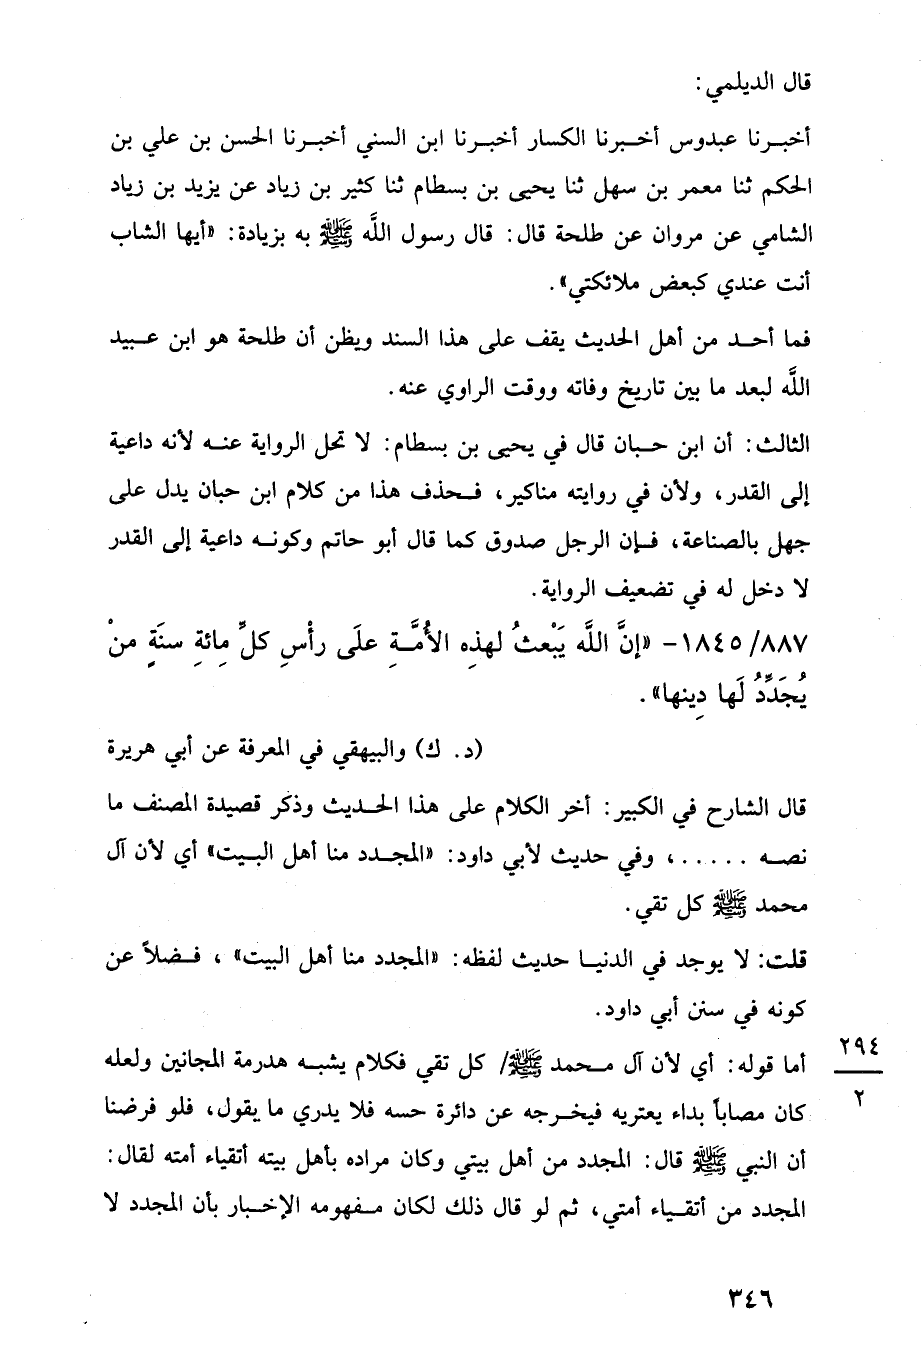 قال الديلمي:
أخبرنا عبدوس أخبرنا الكسار أخبرنا ابن السني أخبرنا الحسن بن علي بن
الحكم ثنا معمر بن سهل ثنا يحيى بن بسطام ثنا كثير بن زياد عن يزيد بن زياد
الشامي عن مروان عن طلحة قال: قال رسول اللَّه ﷺ به بزيادة: «أيها الشاب
أنت عندي كبعض ملائكتي».
فما أحد من أهل الحديث يقف على هذا السند ويظن أن طلحة هو ابن عبيد
اللَّه لبعد ما بين تاريخ وفاته ووقت الراوي عنه.
الثالث: أن ابن حبان قال في يحيى بن بسطام: لا تحل الرواية عنه لأنه داعية
إلى القدر، ولأن في روايته مناكير، فحذف هذا من كلام ابن حبان يدل على
جهل بالصناعة، فإن الرجل صدوق كما قال أبو حاتم وكونه داعية إلى القدر
لا دخل له في تضعيف الرواية.
١٨٤٥/٨٨٧- «إنَّ اللَّه يَبْعثُ لهذِه الأُمَّةِ علَى رأْسِ كلِّ مِائةِ سنَةٍ منْ
يُجَدِّدُ لَها دِينها».
(د. ك) والبيهقي في المعرفة عن أبي هريرة
قال الشارح في الكبير: أخر الكلام على هذا الحديث وذكر قصيدة المصنف ما
نصه ......، وفي حديث لأبي داود: «المجدد منا أهل البيت» أي لأن آل
محمد ﷺ كل تقي.
قلت: لا يوجد في الدنيا حديث لفظه: «المجدد منا أهل البيت» ، فضلاً عن
كونه في سنن أبي داود.
٢٩٤
٢
أما قوله: أي لأن آل محمد ﷺ/ كل تقي فكلام يشبه هدرمة المجانين ولعله
كان مصاباً بداء يعتريه فيخرجه عن دائرة حسه فلا يدري ما يقول، فلو فرضنا
أن النبي ﷺ قال: المجدد من أهل بيتي وكان مراده بأهل بيته أتقياء أمته لقال:
المجدد من أتقياء أمتي، ثم لو قال ذلك لكان مفهومه الإخبار بأن المجدد لا
٣٤٦